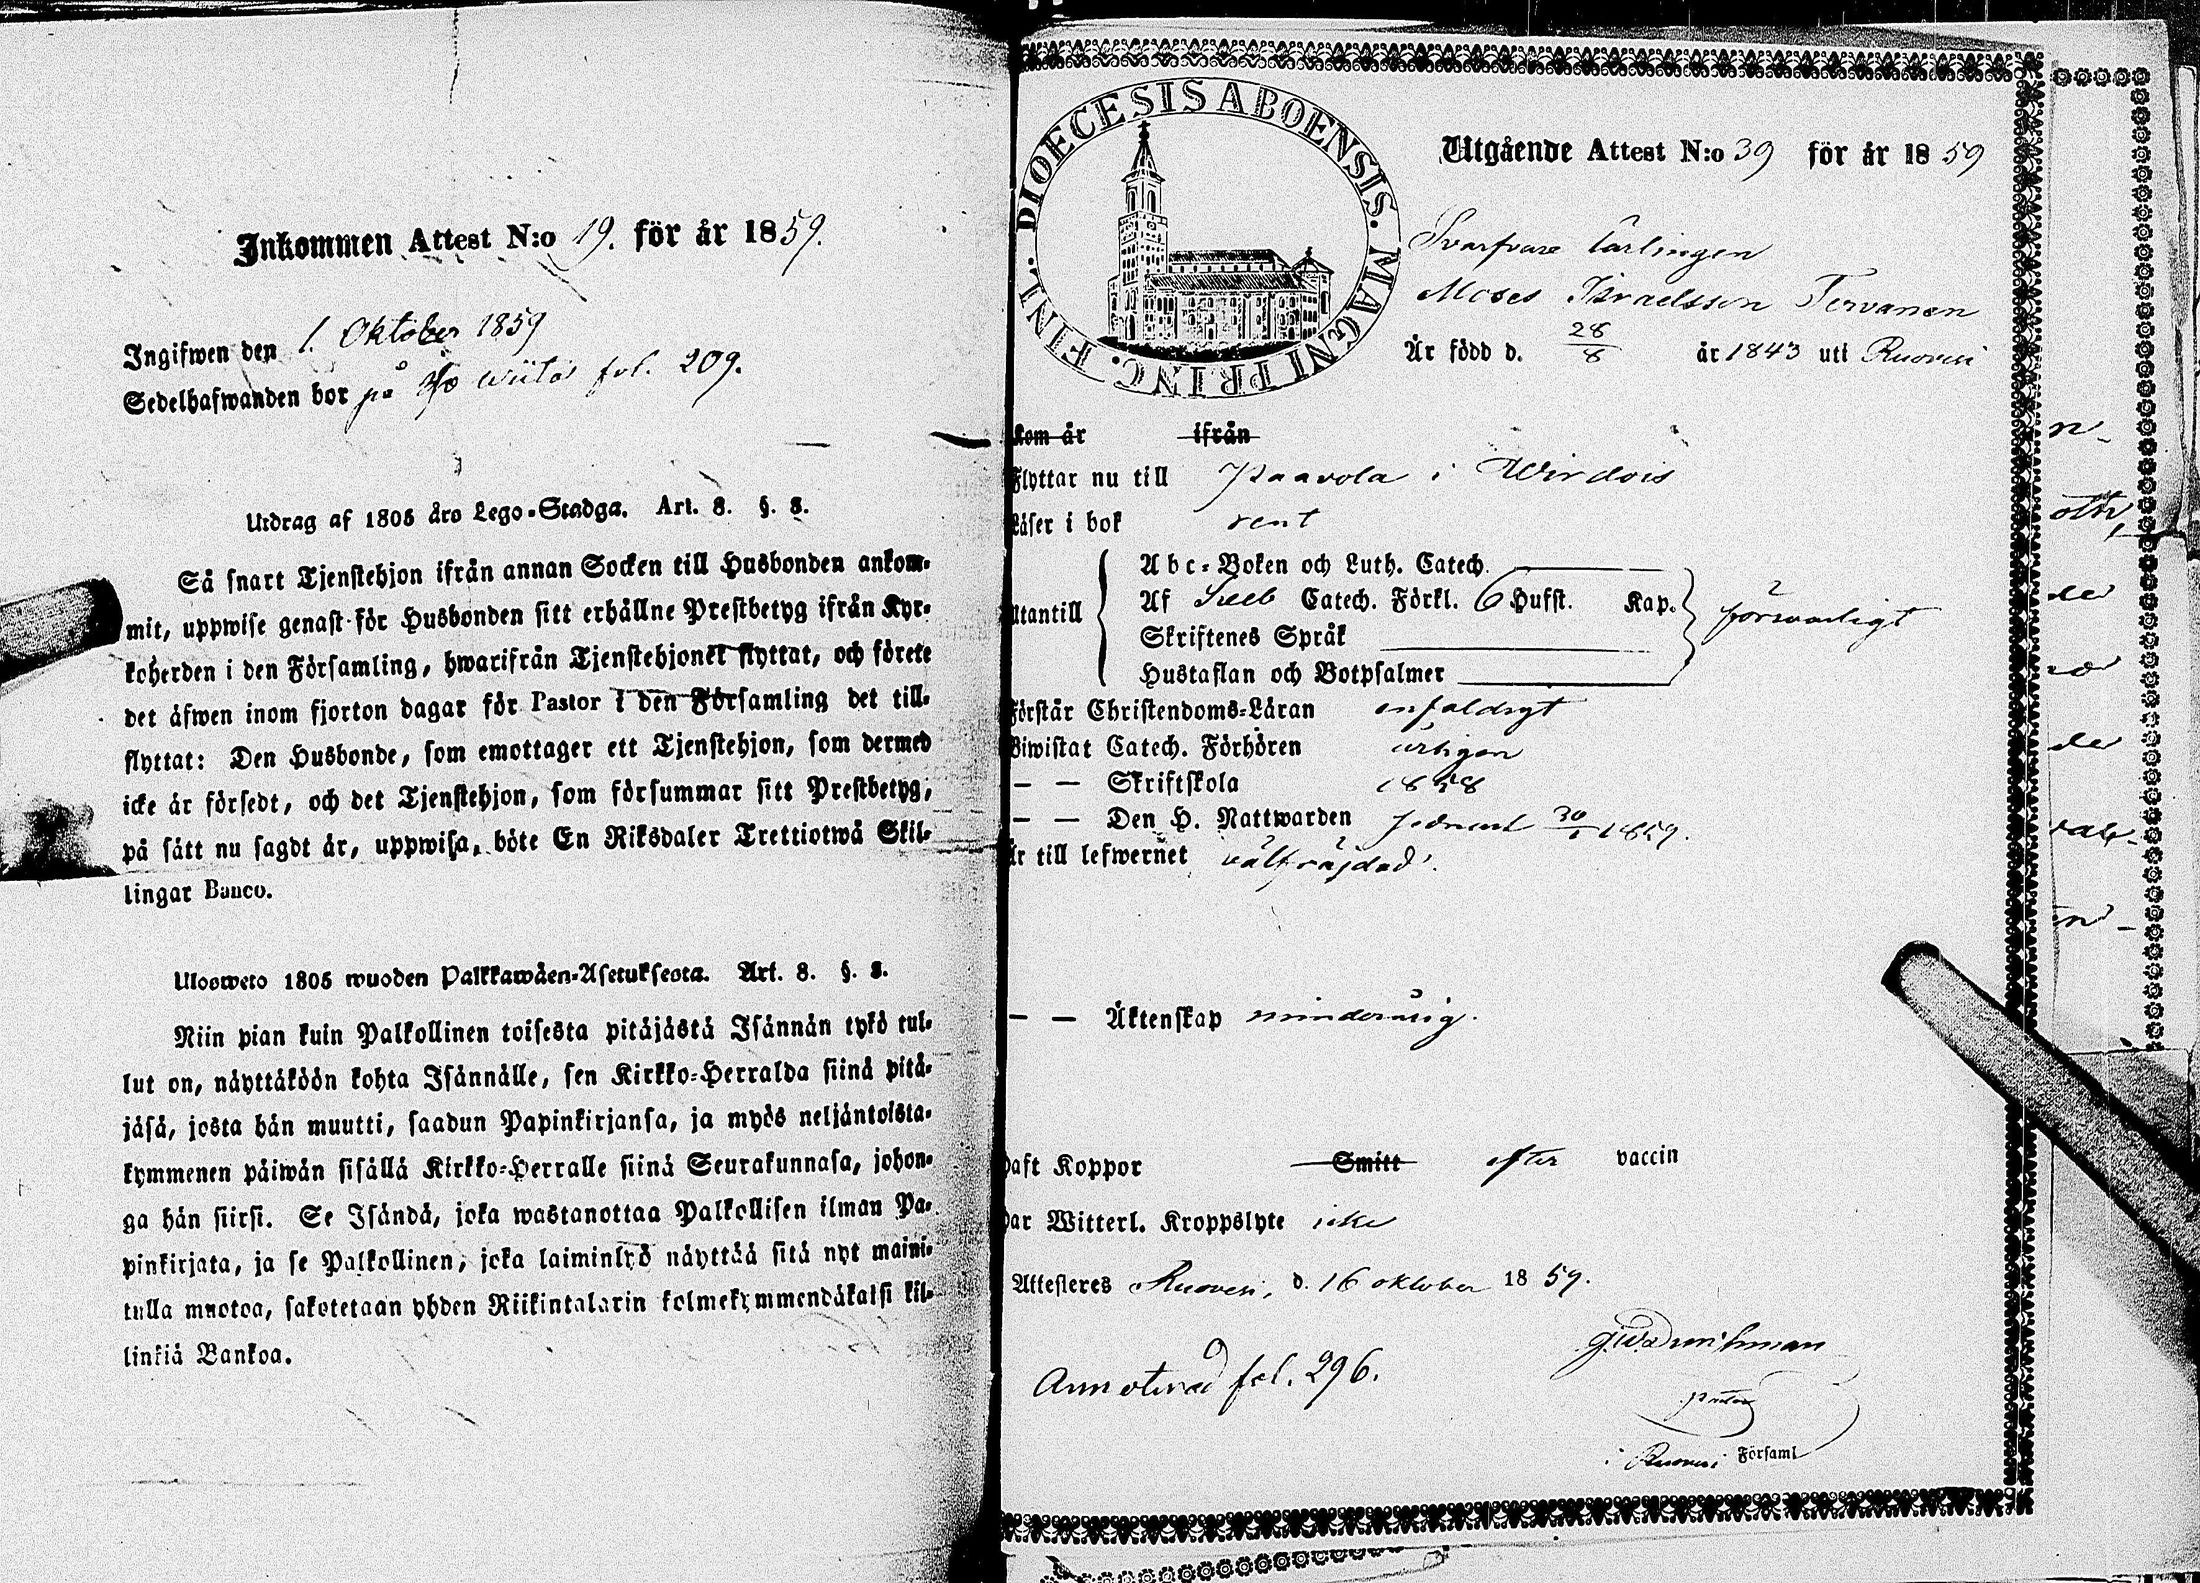 Inkommen Attest N:o 19. för år 1859.
Ingifwen den 1. Oktober 1859
Sedelhafwanden bor på fol. 209.
Utdrag af 1805 års Lego-Stadga. Art. 8. §. 8.
Så snart Tjenstehjon ifrån annan Socken till Husbonden ankom-
mit, uppwise genast för Husbonden sitt erhållne Prestbetyg ifrån Kyr-
koherden i den Församling, hwarifrån Tjenstehjonet flyttat, och förete
det äfwen inom fjorton dagar för Pastor i den Församling det till-
flyttat: Den Husbonde, som emottager ett Tjenstehjon, som dermed
icke är försedt, och det Tjenstehjon, som försummar sitt Prestbetyg,
på sätt nu sagdt är, uppwisa, böte En Riksdaler Trettiotwå Skil-
lingar Banco.
Ulosweto 1805 wuoden Palkkawäen-Asetuksesta. Art. 8. §. 8.
Niin pian kuin Palkollinen toisesta pitäjästä Isännän tykö tul-
lut on, näyttäköön kohta Isännälle, sen Kirkko-Herralda siinä pitä-
jäsä, josta hän muutti, saadun Papinkirjansa, ja myös neljäntoista-
kymmenen päiwän sisällä Kirkko-Herralle siinä Seurakunnasa, johon-
ga hän siirsi. Se Isändä, joka wastanottaa Palkollisen ilman Pa-
pinkirjata, ja se Palkollinen, joka laiminlyö näyttää sitä nyt maini-
tulla muotoa, sakotetaan yhden Riikintalarin kolmekymmendäkaksi kil-
linkiä Bankoa.
FINL. DIOECESIS ABOENSIS. MAGNI PRINC.
Utgående Attest N:o 39 för år 1859
Svarfvare lärlingen
Moses Israelsson Tervanen
Är född d. 28/8 år 1843 uti Ruovesi
Kom år ifrån
Flyttar nu till Paavola i Wirdois
Läser i bok rent
Abc-Boken och Luth. Catech.
Utantill
Af Sveb Catech. Förkl. 6 Hufst. Kap. försvarligt
Skriftenes Språk
Hustaflan och Botpsalmer
Förstår Christendoms-Läran enfaldigt
Biwistat Catech. Förhören årligen
— — Skriftskola 1858
— — Den H. Nattwarden sednast 30/1 1859.
Är till lefwernet välfräjdad.
— — Äktenskap minderårig.
Haft Koppor Smitt efter vaccin
Har Witterl. Kroppslyte icke
Attesteres Ruovesi, d. 16 oktober 1859.
Annoterad fol. 296.
pastor
i Ruovesi Församl